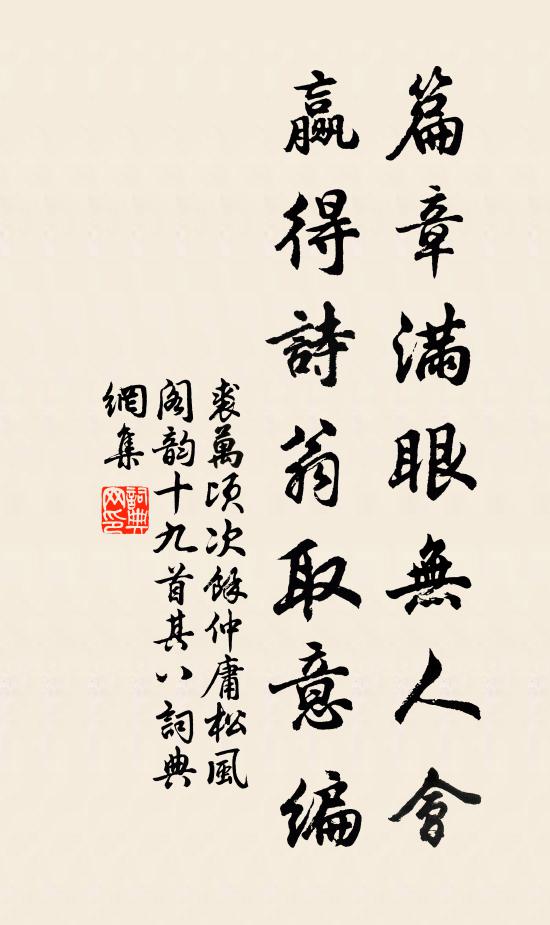 篇章滿眼無人會
贏得詩翁取意編
裘萬頃次餘仲庸松風
閣韵十九首其八詞典
網集
詞典網印